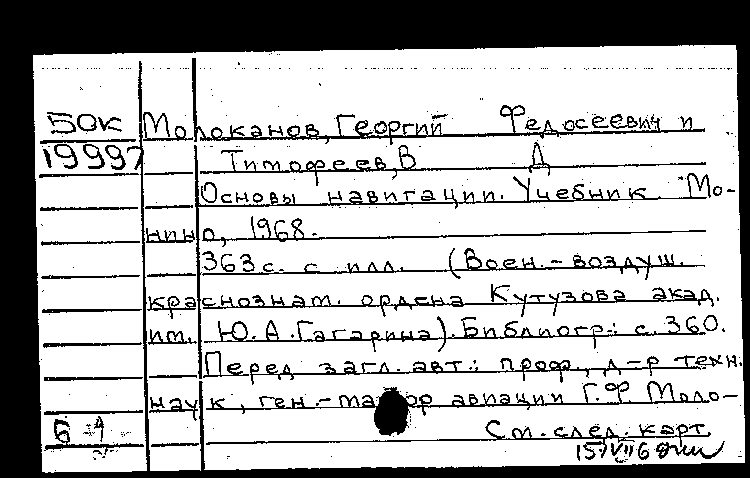 50к Молоканов, Георгий Федосеевич и
19997 Тимофеев, В Д
Основы навигации. Учебник. Мо-
нино, 1968.
363 с. с илл. (Воен.-воздуш.
краснознам. ордена Кутузова акад.
им. Ю.А.Гагарина). Библиогр.: с. 360.
Перед загл. авт.: проф., д-р техн.
наук, ген.-майор авиации Г.Ф Моло-
Б См. след. карт.